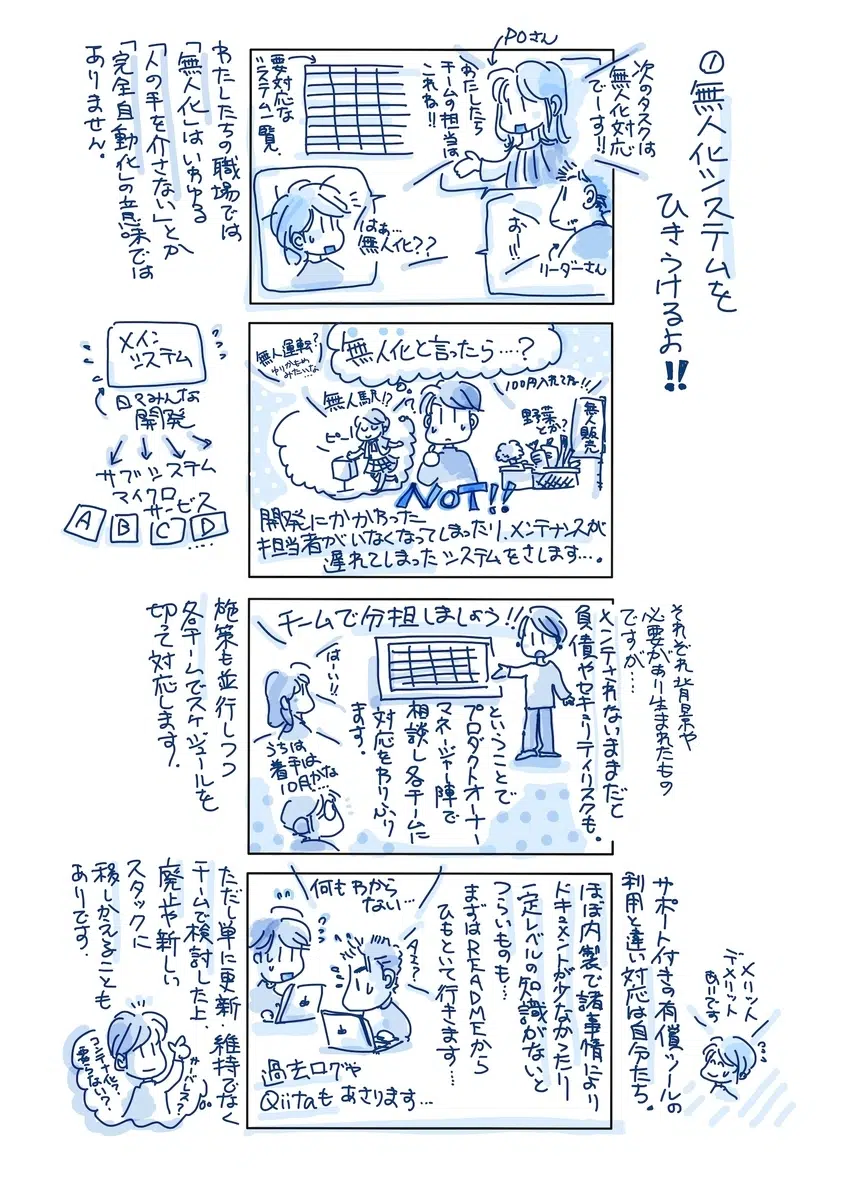 ①無人化システムを
ひきうけるお!!
POさん
次のタスクは
無人化対応
でーす!!
わたしたち
チームの担当は
これね!!
要対応な
システム一覧
お
ー
!!
リーダーさん
はぁ…
無人化??
わたしたちの職場では
「無人化」はいわゆる
「人の手を介さない」とか
「完全自動化」の意味では
ありません。
無人化と言ったら…?
無人運転?
ゆりかもめ
みたいな
無人駅!?
ピー!
100円入れてね!!
野菜
とか?
無人
販売
NOT!!
開発にかかわった
担当者がいなくなってしまったり、メンテナンスが
遅れてしまったシステムをさします…。
メイン
システム
日々みんな
開発
サブシステム
マイクロ
サービス
A B C D
....
それぞれ背景や
必要があり生まれたもの
ですが……
メンテされないままだと
負債やセキュリティリスクも。
チームで分担しましょう!!
はーい!!
うちは
着手は
10月かな
ということで
プロダクトオーナー
マネージャー陣で
相談し各チームに
対応をわりふり
ます。
施策も並行しつつ
各チームでスケジュールを
切って対応します!
サポート付きの有償ツールの
利用と違い対応は自分たち。
メリット
デメリット
ありです
ほぼ内製で諸事情により
ドキュメントが少なかったり
一定レベルの知識がないと
つらいものも…
まずはREADMEから
ひもといて行きます…
何もわから
ない…
過去ログや
Qiitaもあさります…
ただし単に更新・維持でなく
チームで検討した上、
廃止や新しい
スタックに
移しかえることも
ありです。
サーバレス?
コンテナ化?
要らない?